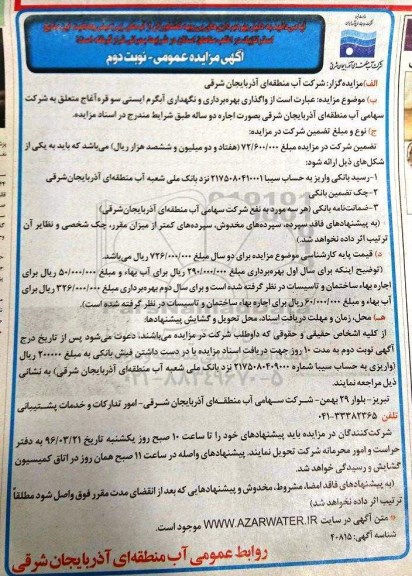 آگهی مزایده عمومی - نوبت دوم
الف) مزایده‌گزار: شرکت آب منطقه‌ای آذربایجان شرقی
ب) موضوع مزایده: عبارت است از واگذاری بهره‌برداری و نگهداری آبگرم ایستی سو قره آغاج متعلق به شرکت
سهامی آب منطقه‌ای آذربایجان شرقی بصورت اجاره دو ساله طبق شرایط مندرج در اسناد مزایده.
ج) نوع و مبلغ تضمین شرکت در مزایده:
تضمین شرکت در مزایده مبلغ ۷۲/۶۰۰/۰۰۰ (هفتاد و دو میلیون و ششصد هزار ریال) می‌باشد که باید به یکی از
شکل‌های ذیل ارائه شود:
۱- رسید بانکی واریز به حساب سیبا ۲۱۷۵۰۸۰۴۱۰۰۰۱ نزد بانک ملی شعبه آب منطقه‌ای آذربایجان‌شرقی
۲- چک تضمین بانکی
۳- ضمانت‌نامه بانکی (هر سه مورد به نفع شرکت سهامی آب منطقه‌ای آذربایجان‌شرقی)
(به پیشنهادهای فاقد سپرده، سپرده‌های مخدوش، سپرده‌های کمتر از میزان مقرر، چک شخصی و نظایر آن
ترتیب اثر داده نخواهد شد.)
د) قیمت پایه کارشناسی موضوع مزایده برای دو سال مبلغ ۷۲۶/۰۰۰/۰۰۰ ریال می‌باشد.
(توضیح اینکه برای سال اول بهره‌برداری مبلغ ۲۹۰/۰۰۰/۰۰۰ ریال برای آب بهاء و مبلغ ۵۰/۰۰۰/۰۰۰ ریال برای
اجاره بهاء ساختمان و تاسیسات در نظر گرفته شده است و برای سال دوم بهره‌برداری مبلغ ۳۲۶/۰۰۰/۰۰۰ ریال برای
آب بهاء و مبلغ ۶۰/۰۰۰/۰۰۰ ریال برای اجاره بهاء ساختمان و تاسیسات در نظر گرفته شده است).
هـ) محل، زمان و مهلت دریافت اسناد، محل تحویل و گشایش پیشنهادها:
از کلیه اشخاص حقیقی و حقوقی که داوطلب شرکت در مزایده می‌باشند، دعوت می‌شود پس از تاریخ درج
آگهی نوبت دوم به مدت ۱۰ روز جهت دریافت اسناد مزایده با در دست داشتن فیش بانکی به مبلغ ۲۰۰۰۰۰ ریال
(واریزی به حساب سیبا شماره ۲۱۷۵۰۸۰۴۰۹۰۰۰ نزد بانک ملی شعبه آب منطقه‌ای آذربایجان شرقی) به نشانی
ذیل مراجعه نمایند.
تبریز- بلوار ۲۹ بهمن- شرکت سهامی آب منطقه‌ای آذربایجان شرقی- امور تدارکات و خدمات پشتیبانی
تلفن ۳۳۳۸۲۳۶۵-۰۴۱
شرکت‌کنندگان در مزایده باید پیشنهادهای خود را تا ساعت ۱۰ صبح روز یکشنبه تاریخ ۹۶/۰۳/۲۱ به دفتر
حراست و امور محرمانه شرکت تحویل نمایند. پیشنهادهای واصله در ساعت ۱۱ صبح همان روز در اتاق کمیسیون
گشایش و رسیدگی خواهد شد.
(به پیشنهادهای فاقد امضا، مشروط، مخدوش و پیشنهادهایی که بعد از انقضای مدت مقرر فوق واصل شود مطلقاً
ترتیب اثر داده نخواهد شد)
* متن آگهی در سایت WWW.AZARWATER.IR موجود است.
شناسه آگهی: ۴۰۸۱۵
روابط عمومی آب منطقه‌ای آذربایجان شرقی